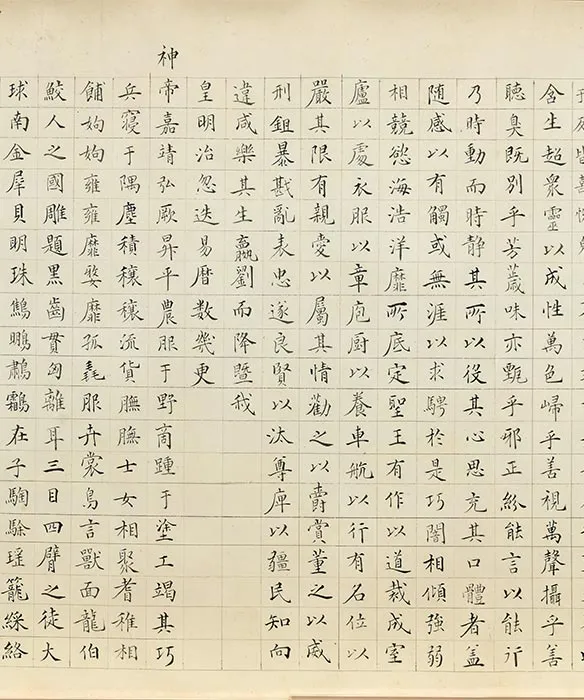 含生超衆靈以成性萬色歸乎善視萬聲攝乎善
聽臭既別乎芳薉味亦甄乎邪正紛能言以能行
乃時動而時静其所以役其心思充其口體者盖
随感以有觸或無涯以求騁於是巧闇相傾強弱
相競慾海浩洋靡所底定聖王有作以道裁成室
廬以處衣服以章庖厨以養車航以行有名位以
嚴其限有親愛以屬其情勸之以爵賞董之以威
刑鉏暴戡亂表忠遂良賢以汰尊庳以疆民知向
違咸樂其生嬴劉而降曁我
皇明治忽迭易暦数幾更
神帝嘉靖弘厥昇平農服于野商踵于塗工竭其巧
兵寝于隅塵積穰穰流貨膴膴士女相聚耆稚相
餔姁姁雍雍靡婺靡孤毳服卉裳鳥言獸面龍伯
鮫人之國雕題黒齒貫匈離耳三目四臂之徒大
球南金犀貝明珠鷦鵬鷫鸘在子騊駼瑶籠綵絡